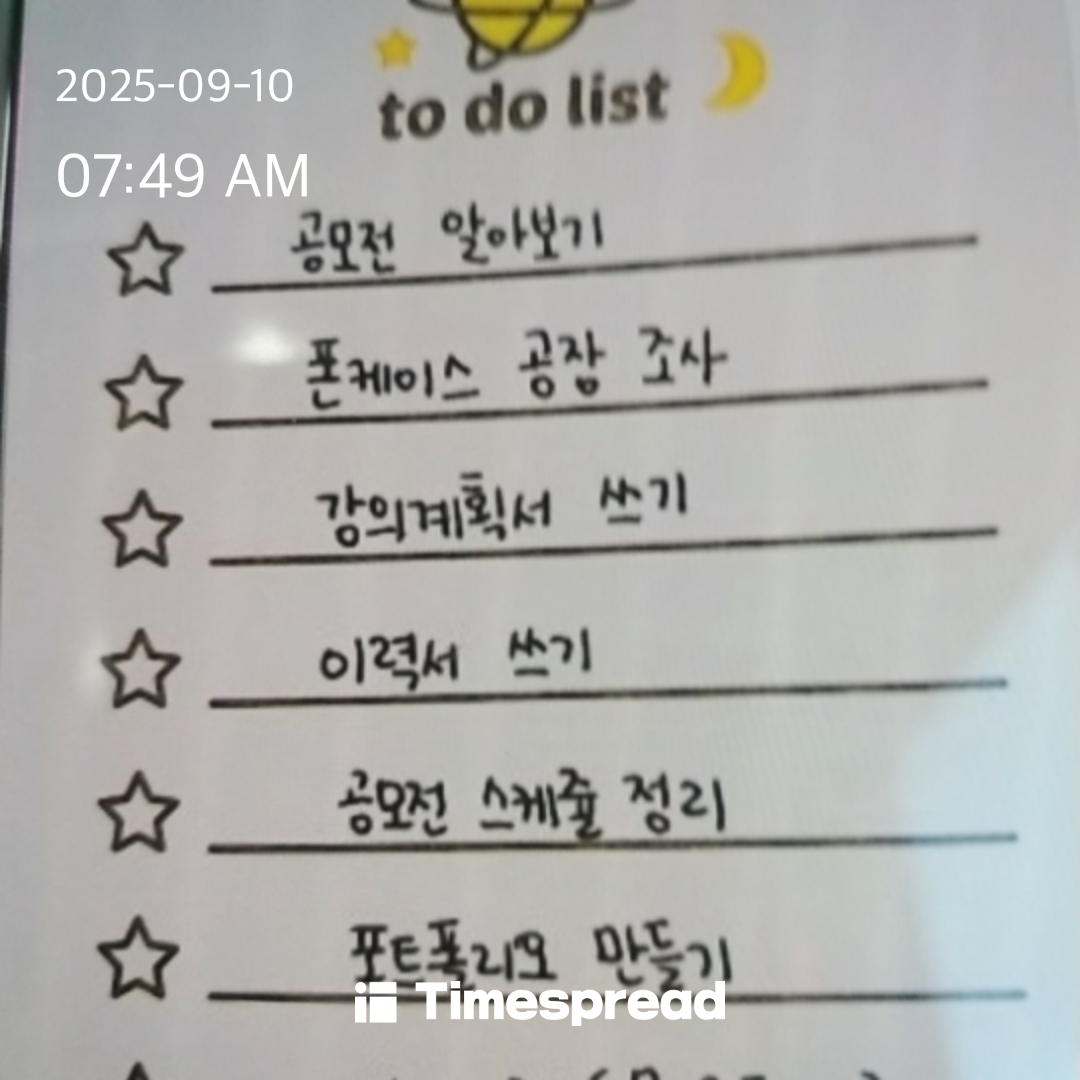 2025-09-10
to do list
07:49 AM
공모전 알아보기
폰케이스 공장 조사
강의계획서 쓰기
이력서 쓰기
공모전 스케줄 정리
포트폴리오 만들기
Timespread